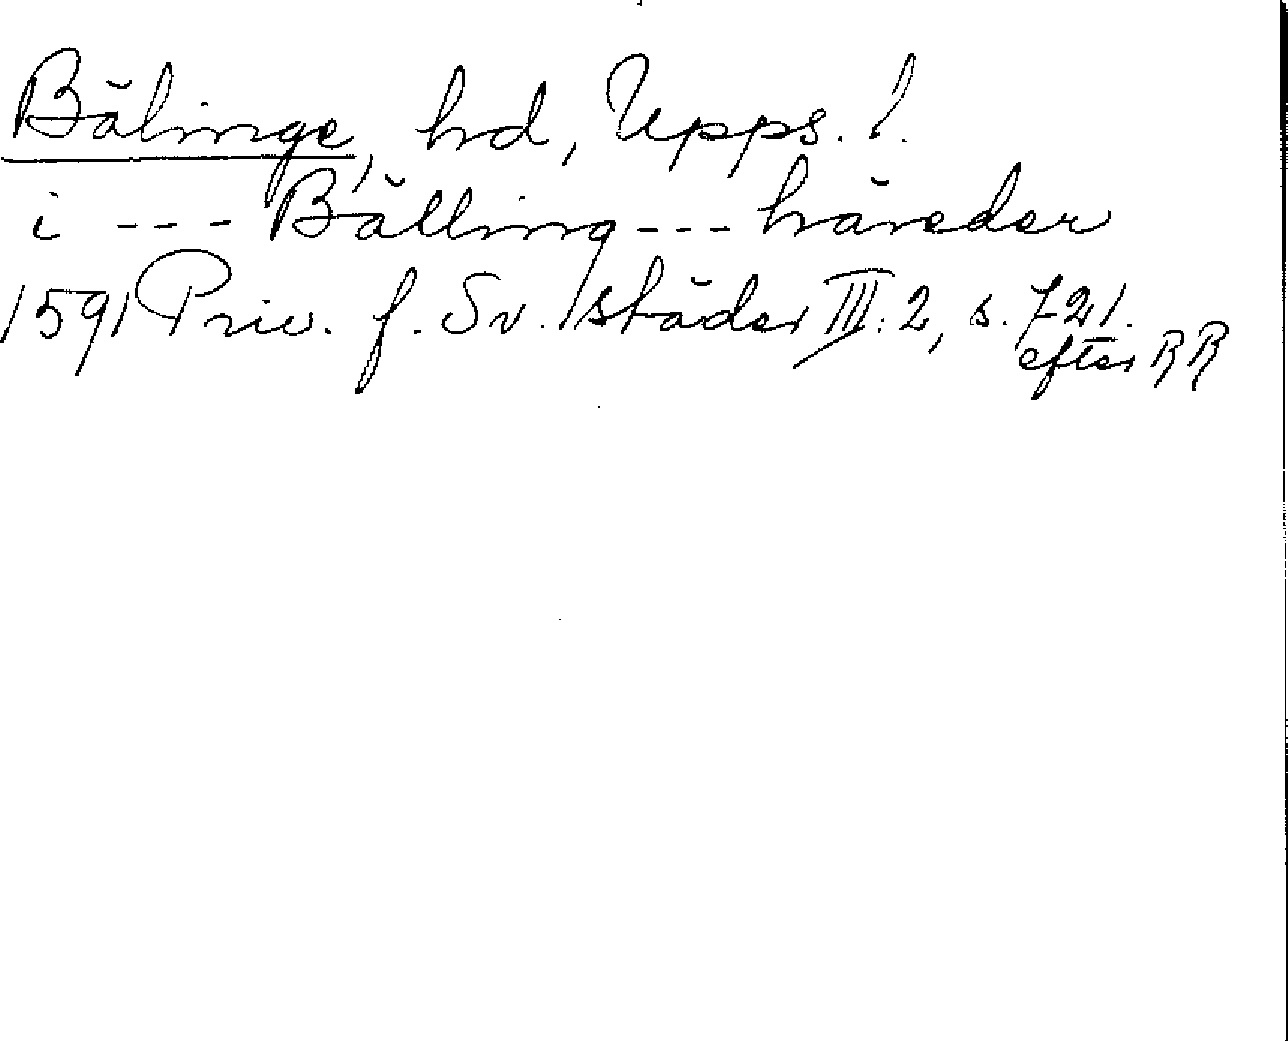 Bälinge, hd, Upps. l.
i --- Bälling --- häreder
1591 Priv. f. Sv. städer III: 2, s. 721.
efter RR